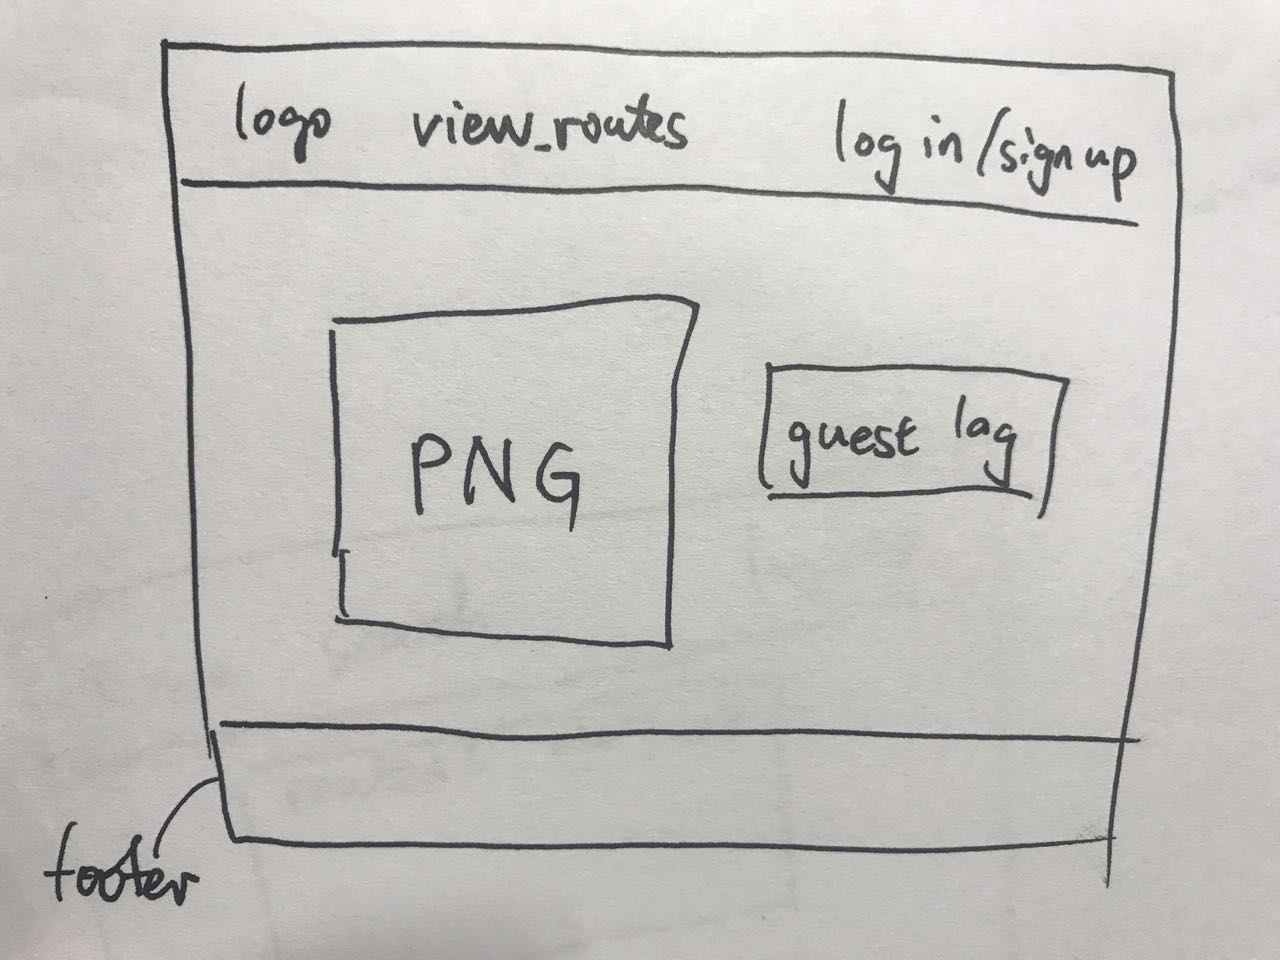 logo view_routes log in/sign up
PNG
guest lag
footer